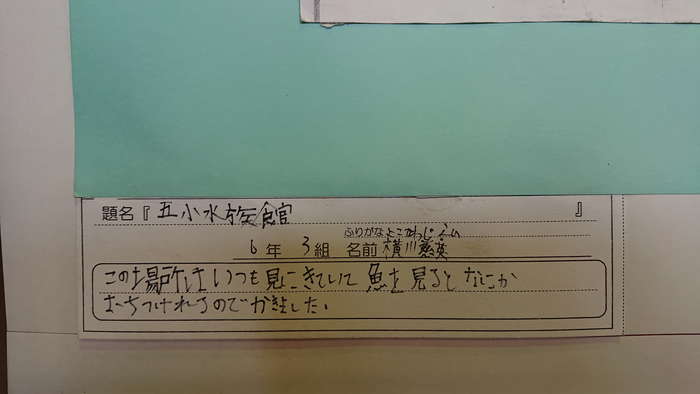 題名『五小水族館』
ふりがな よこかわ
6年 3組 名前 横川
この場所はいつも見にきていて魚を見るとなにか
おちつけれるのでかきました。